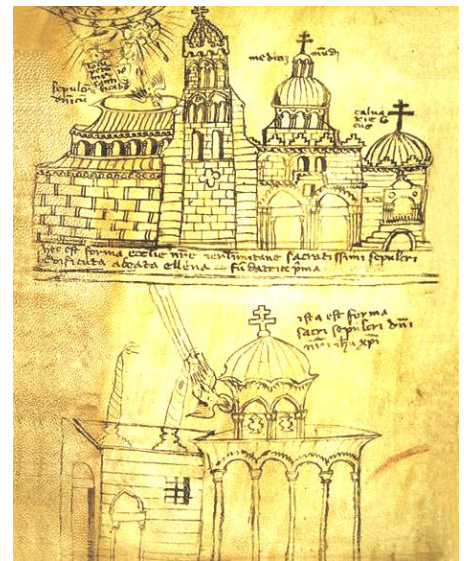 sepulcru
dnicu
mediuz mūdi
calva
rie lo
cus
hec est forma ierlimitane sacratissimi sepulcri
edificata abeata ellena fūdatrice pma
ista est forma
sacri sepulcri dni
nri ihu xpi